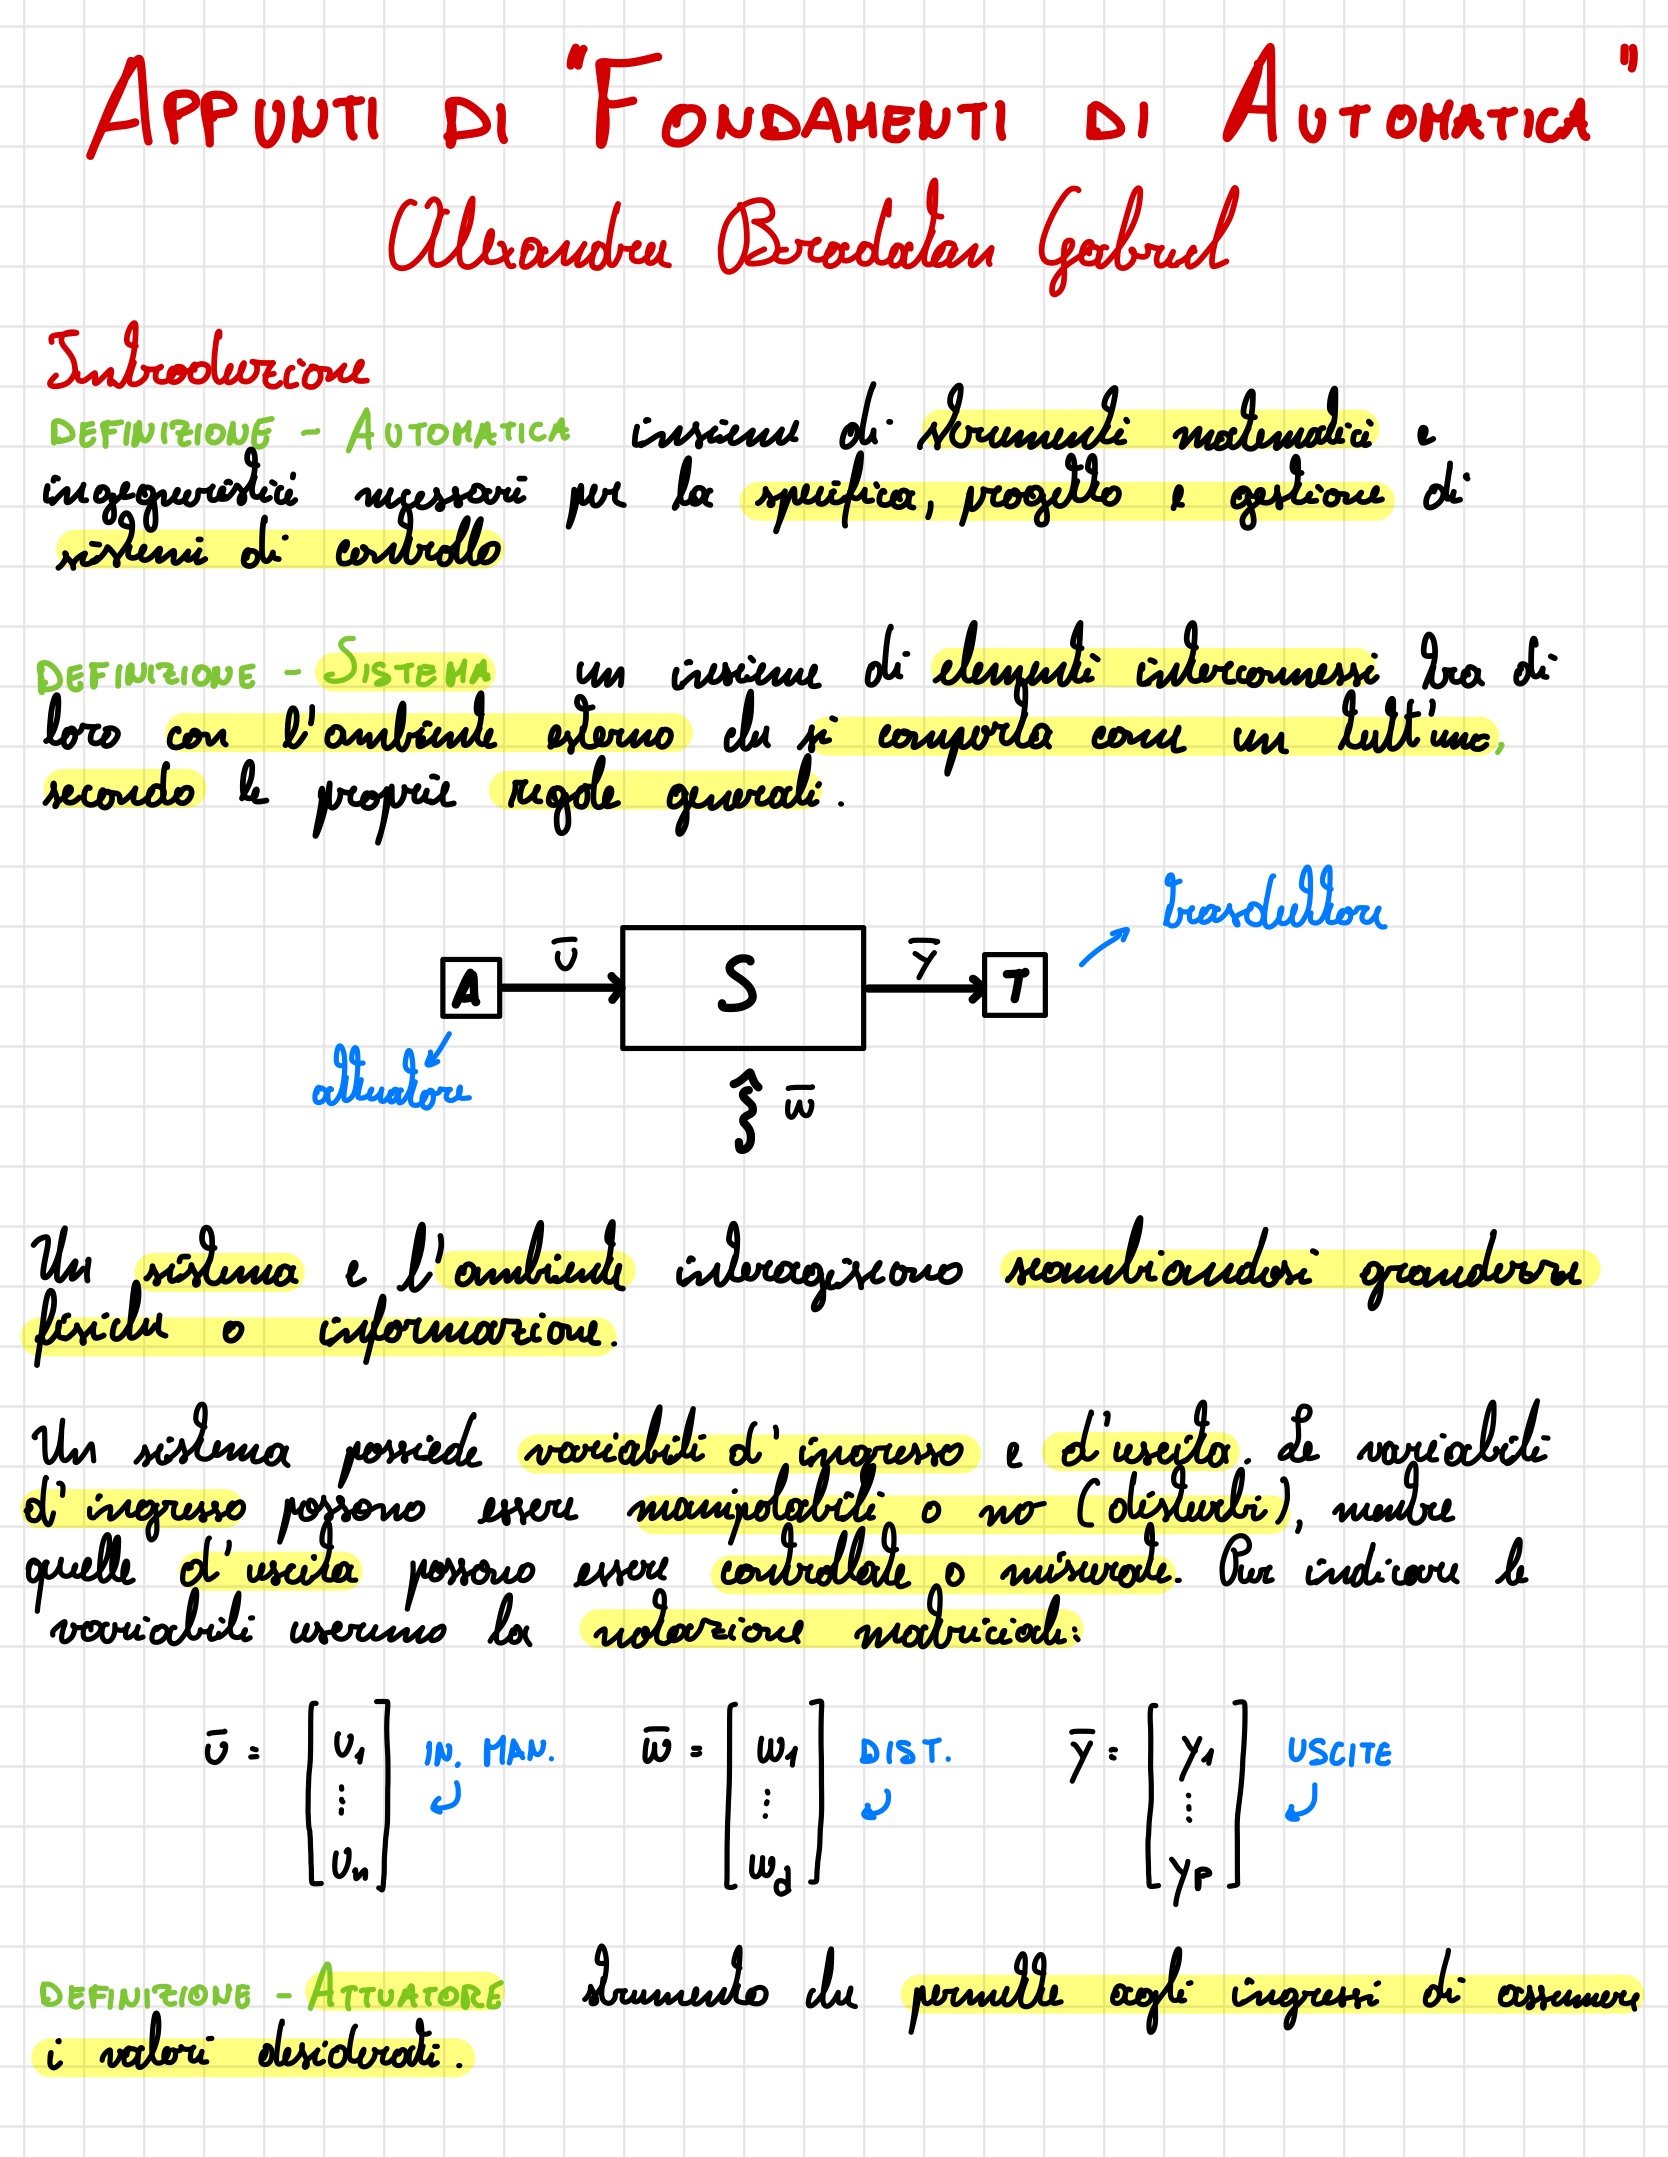 APPUNTI DI "FONDAMENTI DI AUTOMATICA"
Alexandru Bradatan Gabriel
Introduzione
DEFINIZIONE - AUTOMATICA insieme di strumenti matematici e
ingegneristici necessari per la specifica, progetto e gestione di
sistemi di controllo
DEFINIZIONE - SISTEMA un insieme di elementi interconnessi tra di
loro con l'ambiente esterno che si comporta come un tutt'uno,
secondo le proprie regole generali.
trasduttore
A U̅ S Y̅ T
attuatore
w̅
Un sistema e l'ambiente interagiscono scambiandosi grandezze
fisiche o informazione.
Un sistema possiede variabili d'ingresso e d'uscita. Le variabili
d'ingresso possono essere manipolabili o no (disturbi), mentre
quelle d'uscita possono essere controllate o misurate. Per indicare le
variabili useremo la notazione matriciale:
u̅ = [u₁ ⋮ uₙ] IN. MAN. w̅ = [w₁ ⋮ w_d] DIST. y̅ = [y₁ ⋮ y_p] USCITE
DEFINIZIONE - ATTUATORE strumento che permette agli ingressi di assumere
i valori desiderati.